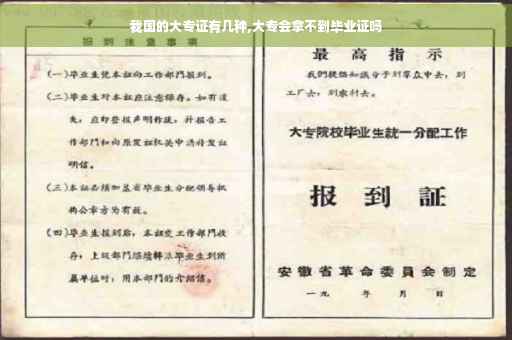 我国的大专证有几种,大专会拿不到毕业证吗
报到注意事项
(一)毕业生凭本证向工作部门报到。
(二)毕业生对本证应注意保存。如有遗
失,应即登报声明作废,并报告工
作部门和向原发证机关申请补发证
明信。
(三)本证必须加盖省毕业生分配领导机
构公章方为有效。
(四)毕业生报到后,本证交工作部门收
存;上级部门继续转派毕业生到所
属单位时,用本部门的介绍信。
最高指示
我们提倡知识分子到群众中去,到
工厂去,到农村去。
大专院校毕业生統一分配工作
报到証
安徽省革命委員会制定
一九 年 月 日